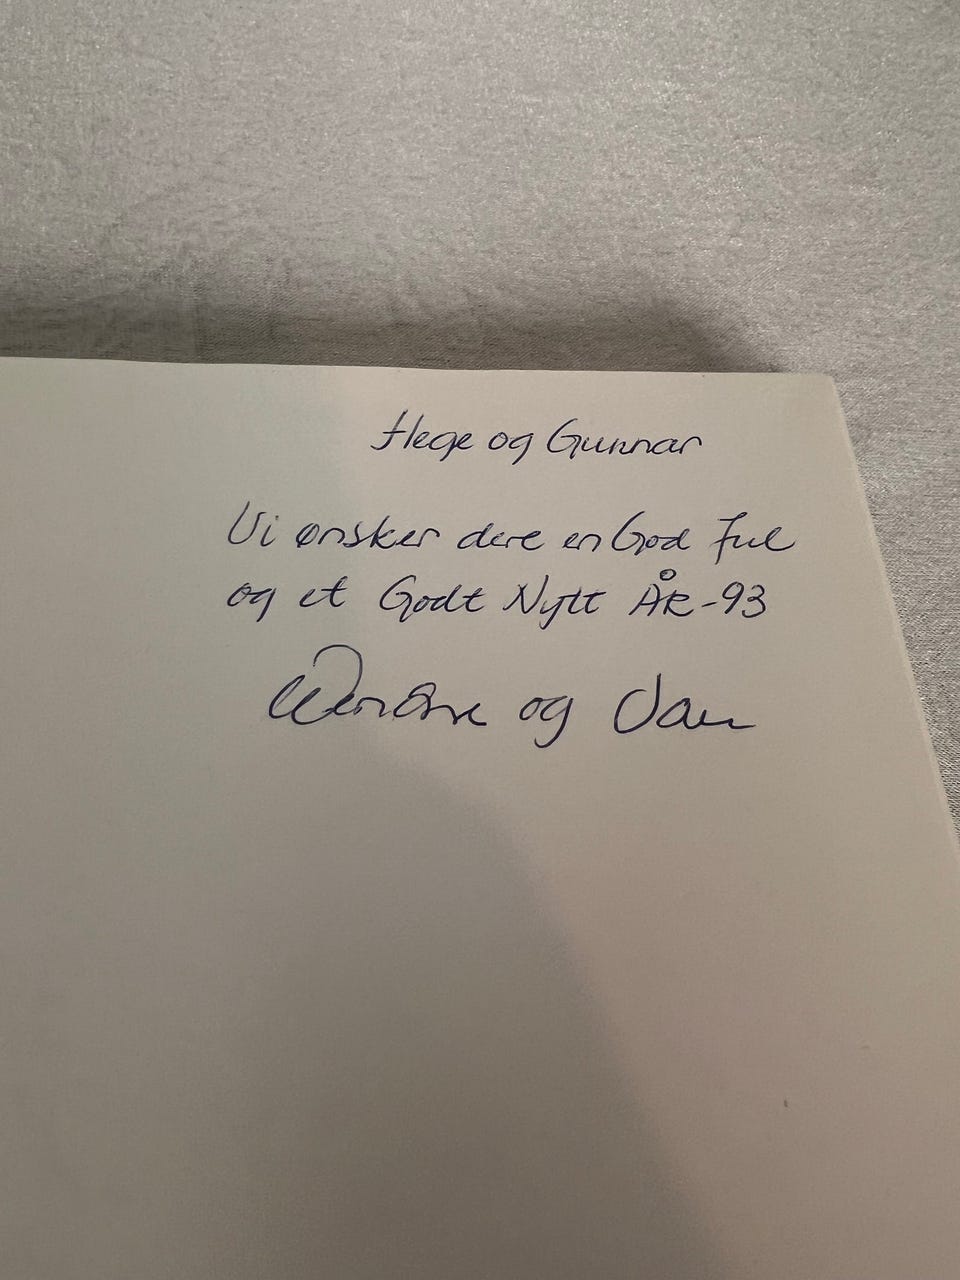 Hege og Gunnar
Vi ønsker dere en God Jul
og et Godt Nytt ÅR-93
og Jan